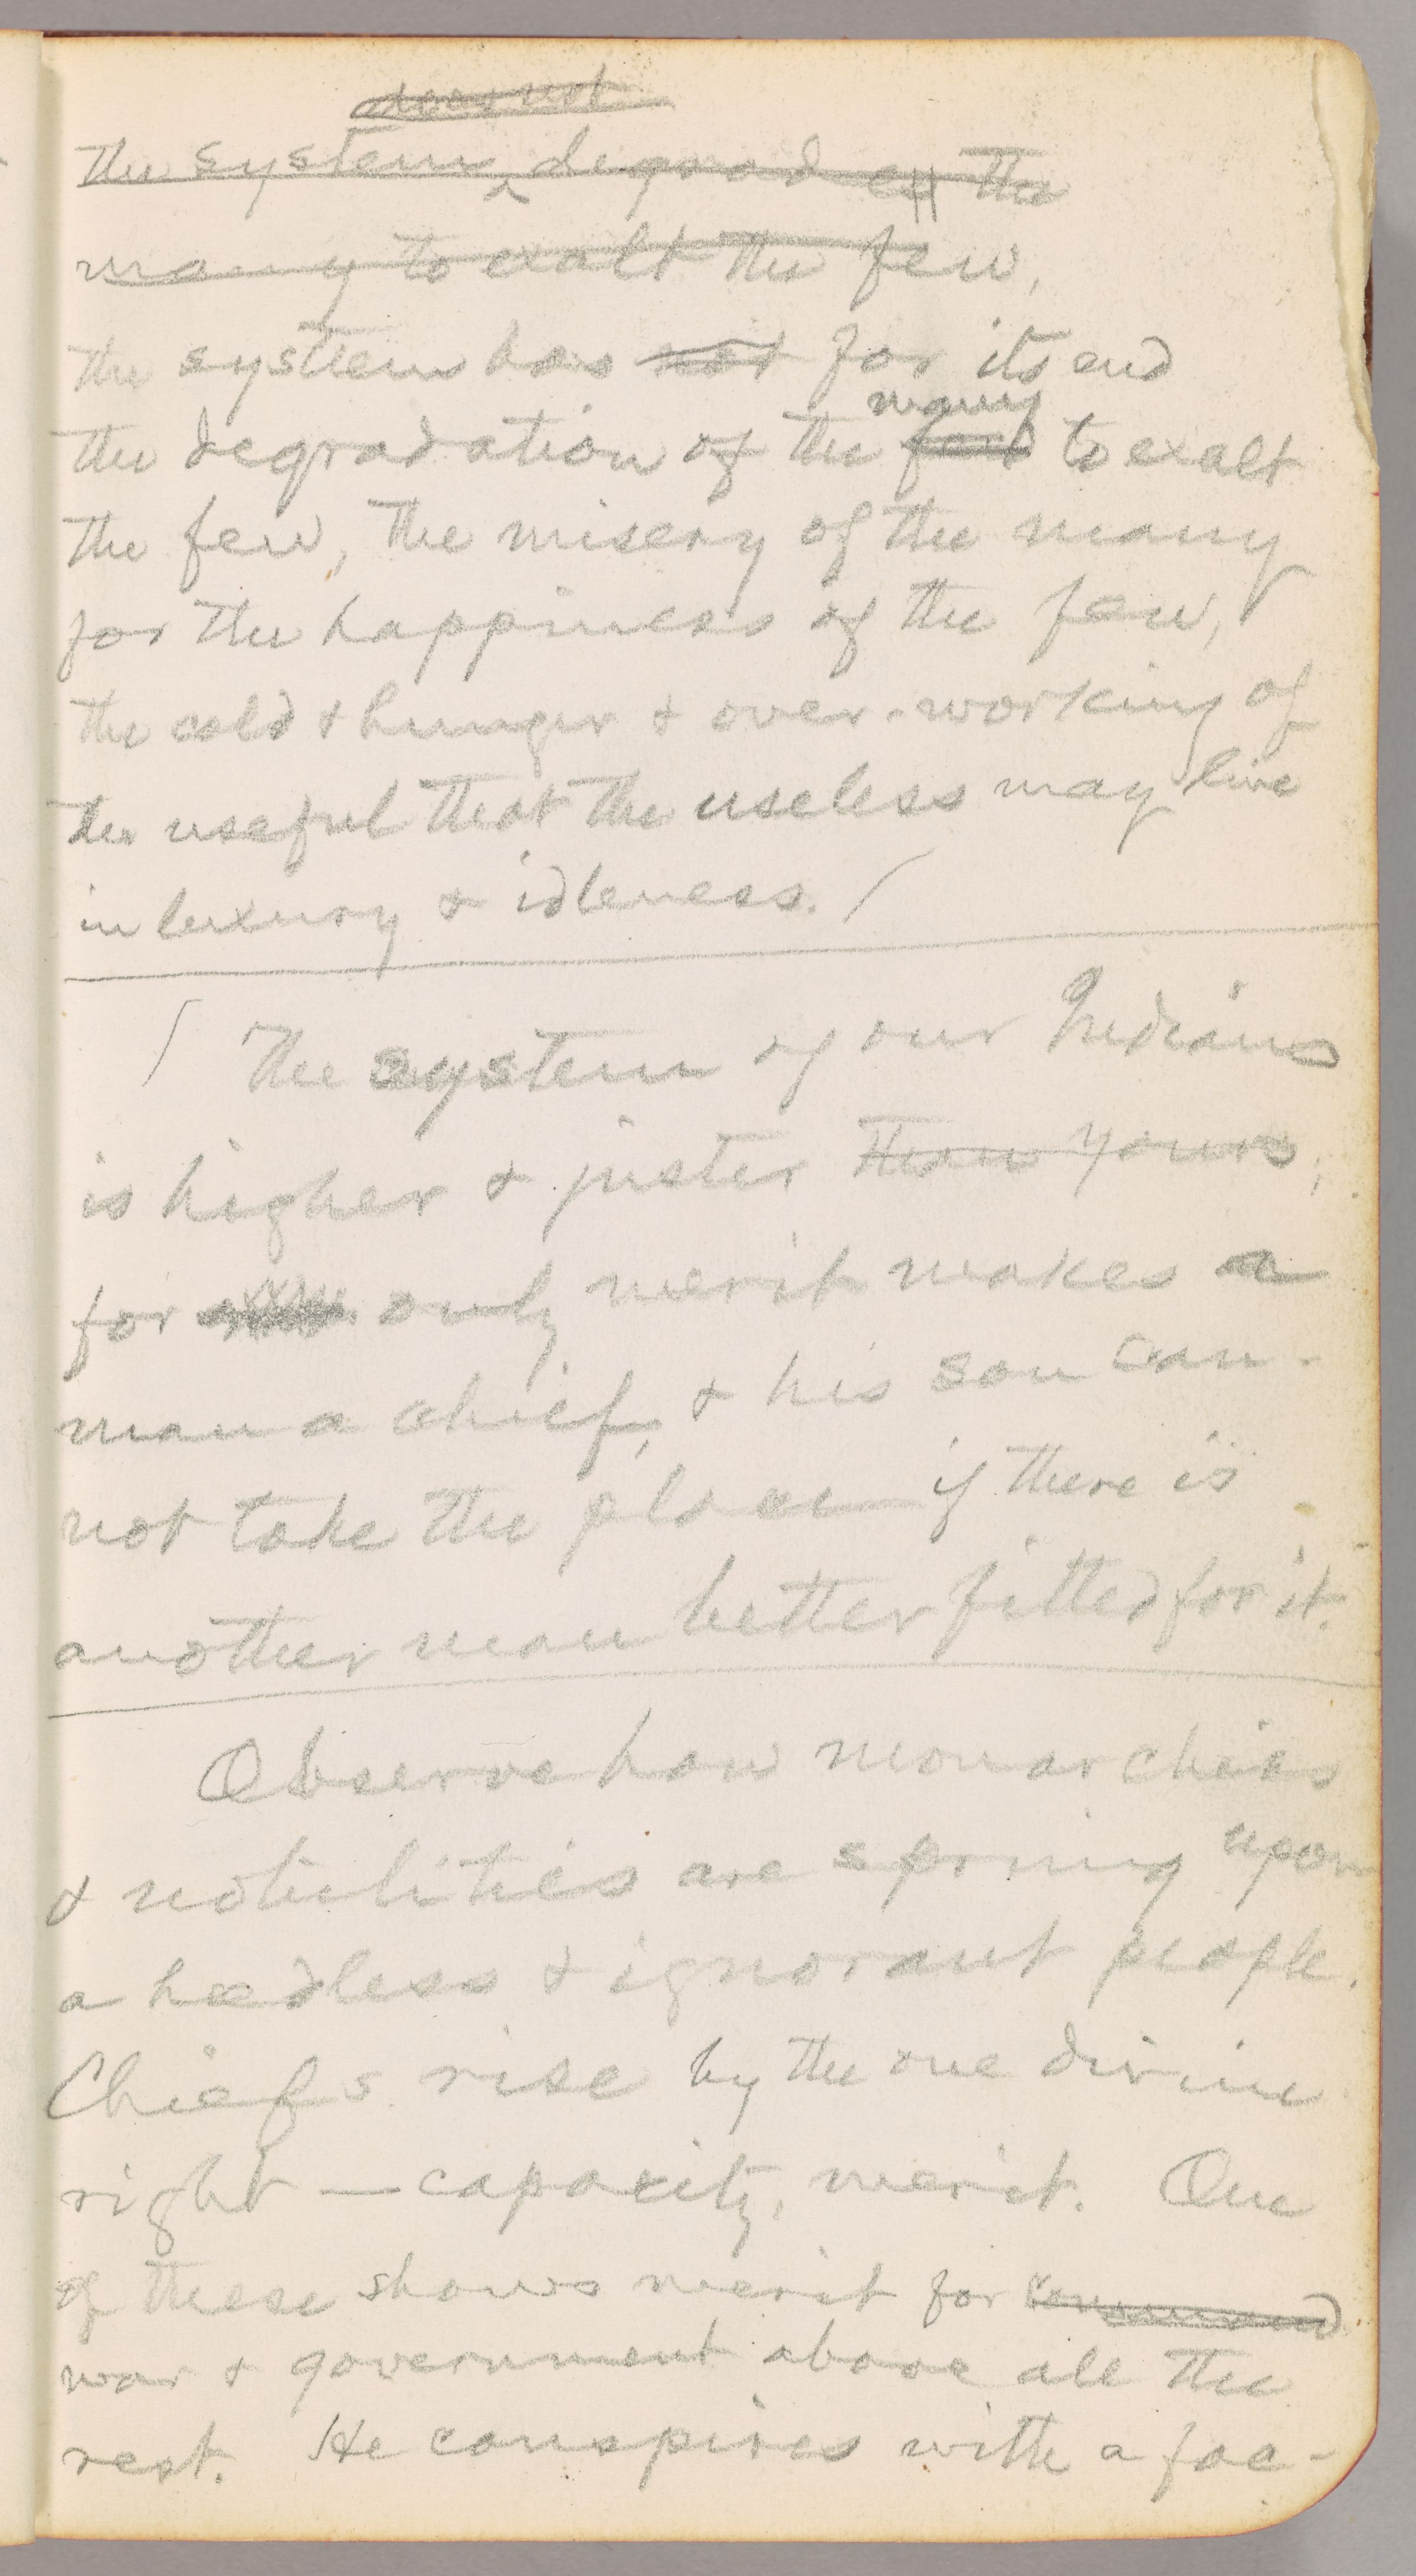 does not
the system degrades the
many to exalt the few,
the system has not for its end
many
the degradation of the to exalt
the few, the misery of the many
for the happiness of the few,
the cold & hunger & over-working of
the useful that the useless may live
in luxury & idleness. /
/ The system of our Indians
is higher & juster than yours,
for only merit makes a
man a chief, & his son can-
not take the place if there is
another man better fitted for it.
Observe how monarchies
& nobilities are sprung upon
a heedless & ignorant people.
Chiefs rise by the one divine
right — capacity, merit. One
of these shows merit for command
war & government above all the
rest. He conspires with a foe-